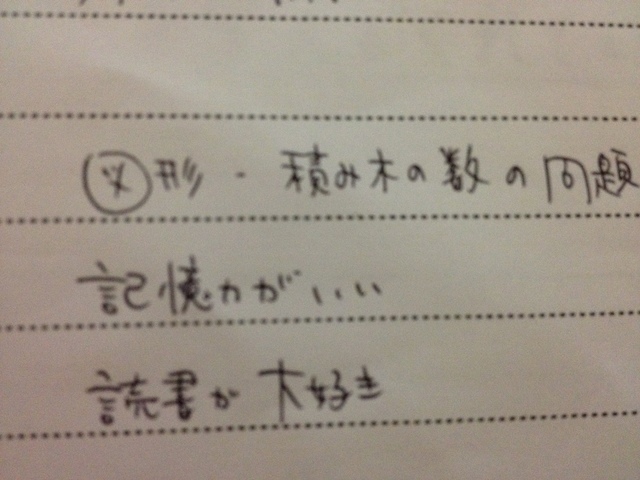 図形・積み木の数の問題
記憶力がいい
読書が大好き